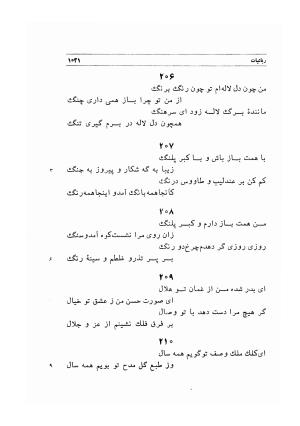 رباعیات
۱۰۳۱
۲۰۶
من چون دل لاله‌ام تو چون رنگ برنگ
از من تو چرا باز همی داری چنگ
مانندهٔ برگ لاله زود ای سرهنگ
همچون دل لاله در برم گیری تنگ
۲۰۷
با همت باز باش و با کبر پلنگ
۳ زیبا به گه شکار و پیروز به جنگ
کم کن بر عندلیب و طاووس درنگ
کانجاهمه‌بانگ آمدو اینجاهمه‌رنگ
۲۰۸
من همت باز دارم و کبر پلنگ
زان روی مرا نشست‌کوه آمدوسنگ
روزی روزی گر دهدم‌چرخ‌دو رنگ
۶ بر پر تذرو غلطم و سینهٔ رنگ
۲۰۹
ای بدر شده من از غمان تو هلال
ای صورت حسن من ز عشق تو خیال
گر هیچ مرا دست دهد با تو وصال
بر فرق فلک نشینم از عز و جلال
۲۱۰
ای‌کلک ملک وصف توگویم همه سال
۹ وز طبع گل مدح تو بویم همه سال